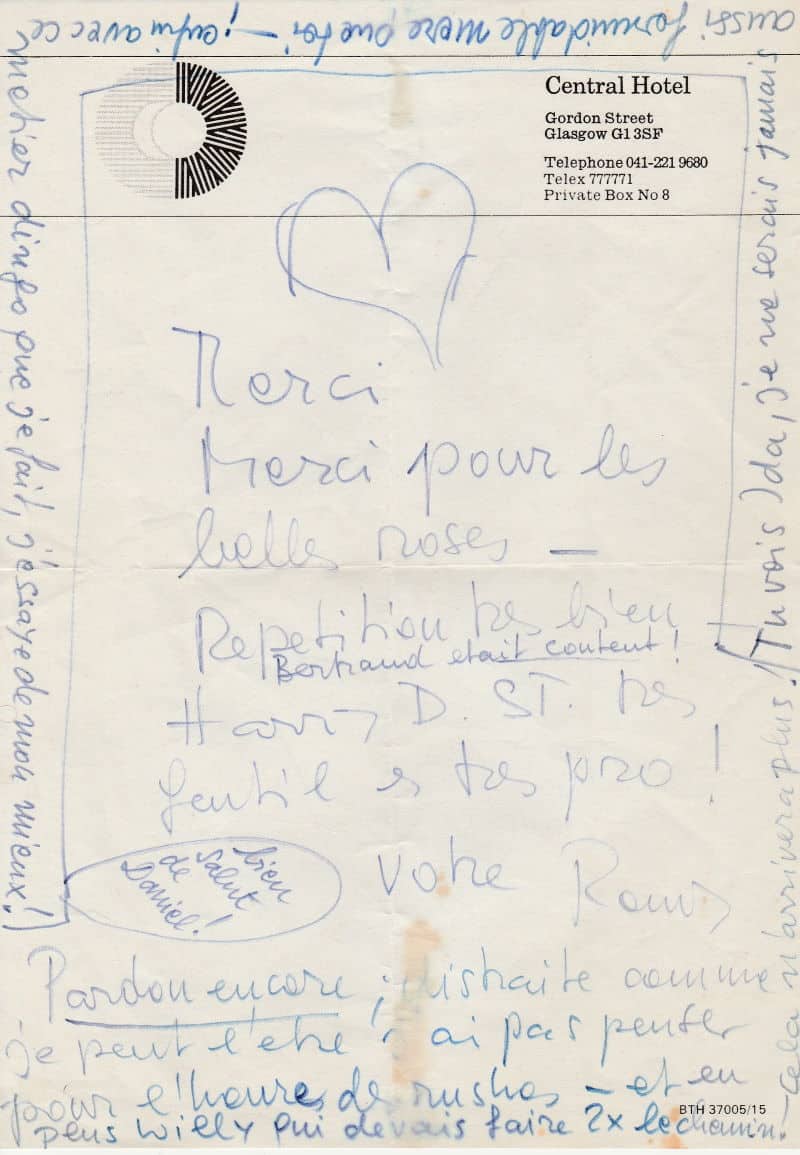 Central Hotel
Gordon Street
Glasgow G1 3SF
Telephone 041-221 9680
Telex 777771
Private Box No 8
Merci
Merci pour les
belles roses —
Repetition tres bien
Bertrand etait content!
Harry D. ST. tres
gentil es tres pro!
Votre Romy
bien
salut
de
Daniel!
Pardon encore; distraite comme
je peut l'etre j'ai pas penser
pour l'heures de rushes – et en
plus Willy qui devais faire 2x le chemin! –
BTH 37005/15
Cela n'arrivera plus!
Tu vois Ida, je ne serais jamais
aussi formidable mere que toi – ; enfin avec ce
metier dingo que je fait, j'essaye de mon mieux!